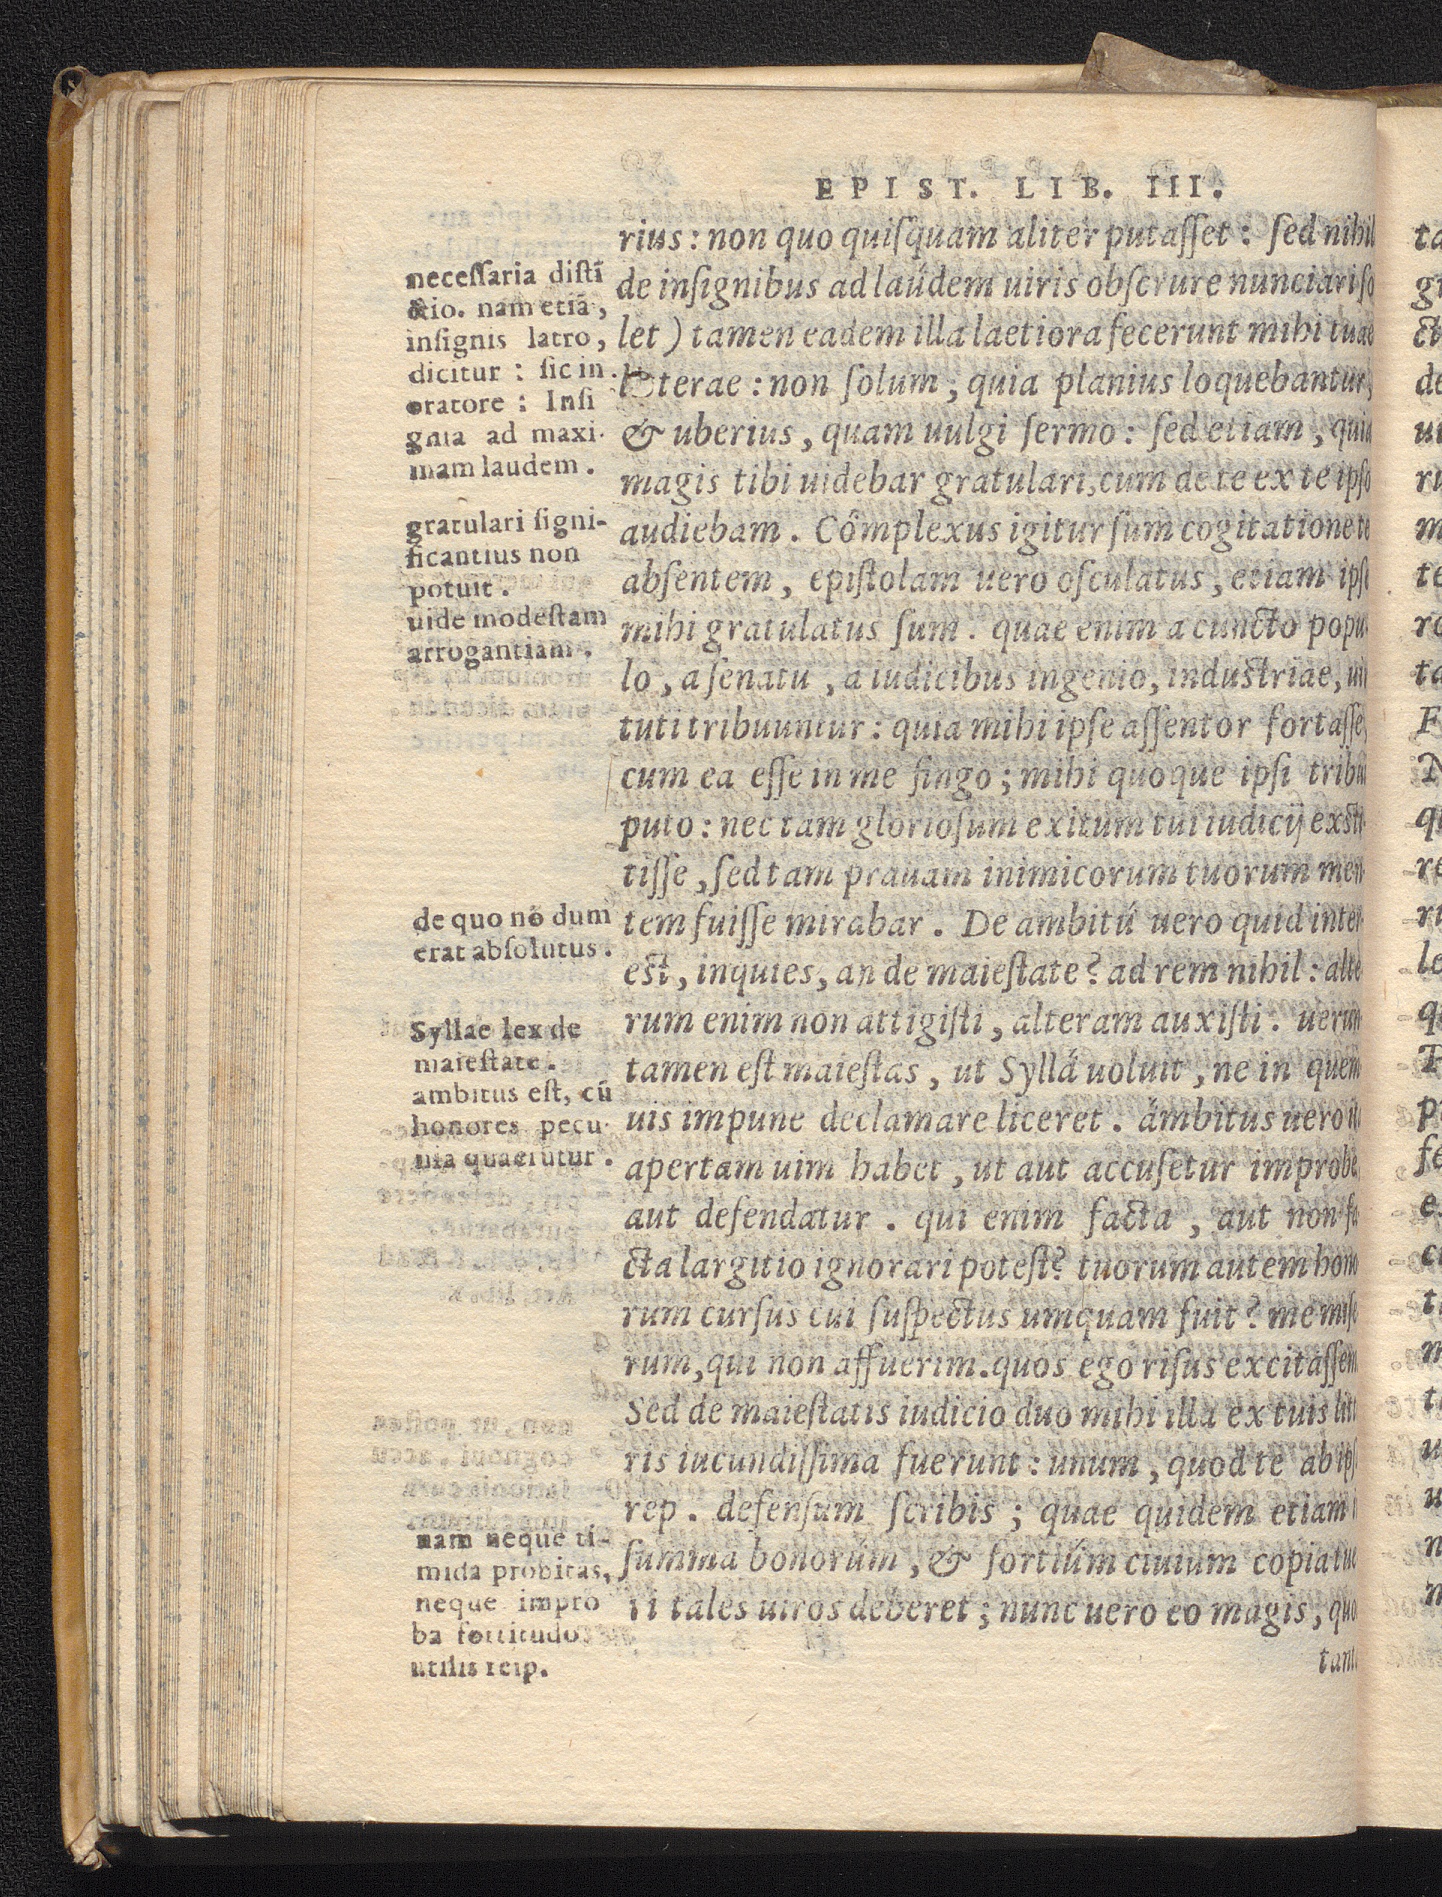 EPIST. LIB. III.
rius: non quo quiſquam aliter putaſſet: ſed nihil
de inſignibus ad laúdem uiris obſcrure nunciari ſo
let) tamen eadem illa laetiora fecerunt mihi tuae
terae: non ſolum, quia planius loquebantur,
& uberius, quam uulgi ſermo: ſed etiam, quia
magis tibi uidebar gratulari, cum de te ex te ipſo
audiebam. Cômplexus igitur ſum cogitatione te
abſentem, epiſtolam uero oſculatus, etiam ipſe
mihi gratulatus ſum. quae enim a cuncto popu
lo, a ſenatu, a iudicibus ingenio, induſtriae, uir
tuti tribuuntur: quia mihi ipſe aſſentor fortaſſe,
cum ea eſſe in me fingo; mihi quoque ipſi tribui
puto: nec tam glorioſum exitum tui iudicij exsti
tiſſe, ſed tam prauam inimicorum tuorum men
tem fuiſſe mirabar. De ambitú uero quid inter
eſt, inquies, an de maieſtate? ad rem nihil: alte
rum enim non attigiſti, alteram auxiſti. uerum
tamen eſt maieſtas, ut Syllá uoluit, ne in quem
uis impune declamare liceret. ámbitus uero ita
apertam uim habet, ut aut accuſetur improbe,
aut defendatur. qui enim facta, aut non fa
cta largitio ignorari poteſt? tuorum autem hono
rum curſus cui ſuſpectus umquam fuit? me miſe
rum, qui non affuerim. quos ego riſus excitaſſem
Sed de maieſtatis iudicio duo mihi illa ex tuis litt
ris iucundiſſima fuerunt: unum, quod te ab ipſ
rep. defenſum ſcribis; quae quidem etiam
ſumma bonorúm, & fortiúm ciuium copia tue
ri tales uiros deberet; nunc uero eo magis, quo
tant
neceſſaria diſtī
ctio. nam etiā,
inſignis latro,
dicitur: ſic in
oratore: Inſi
gnia ad maxi-
mam laudem.
gratulari ſigni-
ficantius non
potuit.
uide modeſtam
arrogantiam.
de quo nō dum
erat abſolutus.
Syllae lex de
maieſtate.
ambitus eſt, cū
honores pecu-
nia quaerūtur.
nam neque ti-
mida probitas,
neque impro
ba fortitudo
utilis reip.